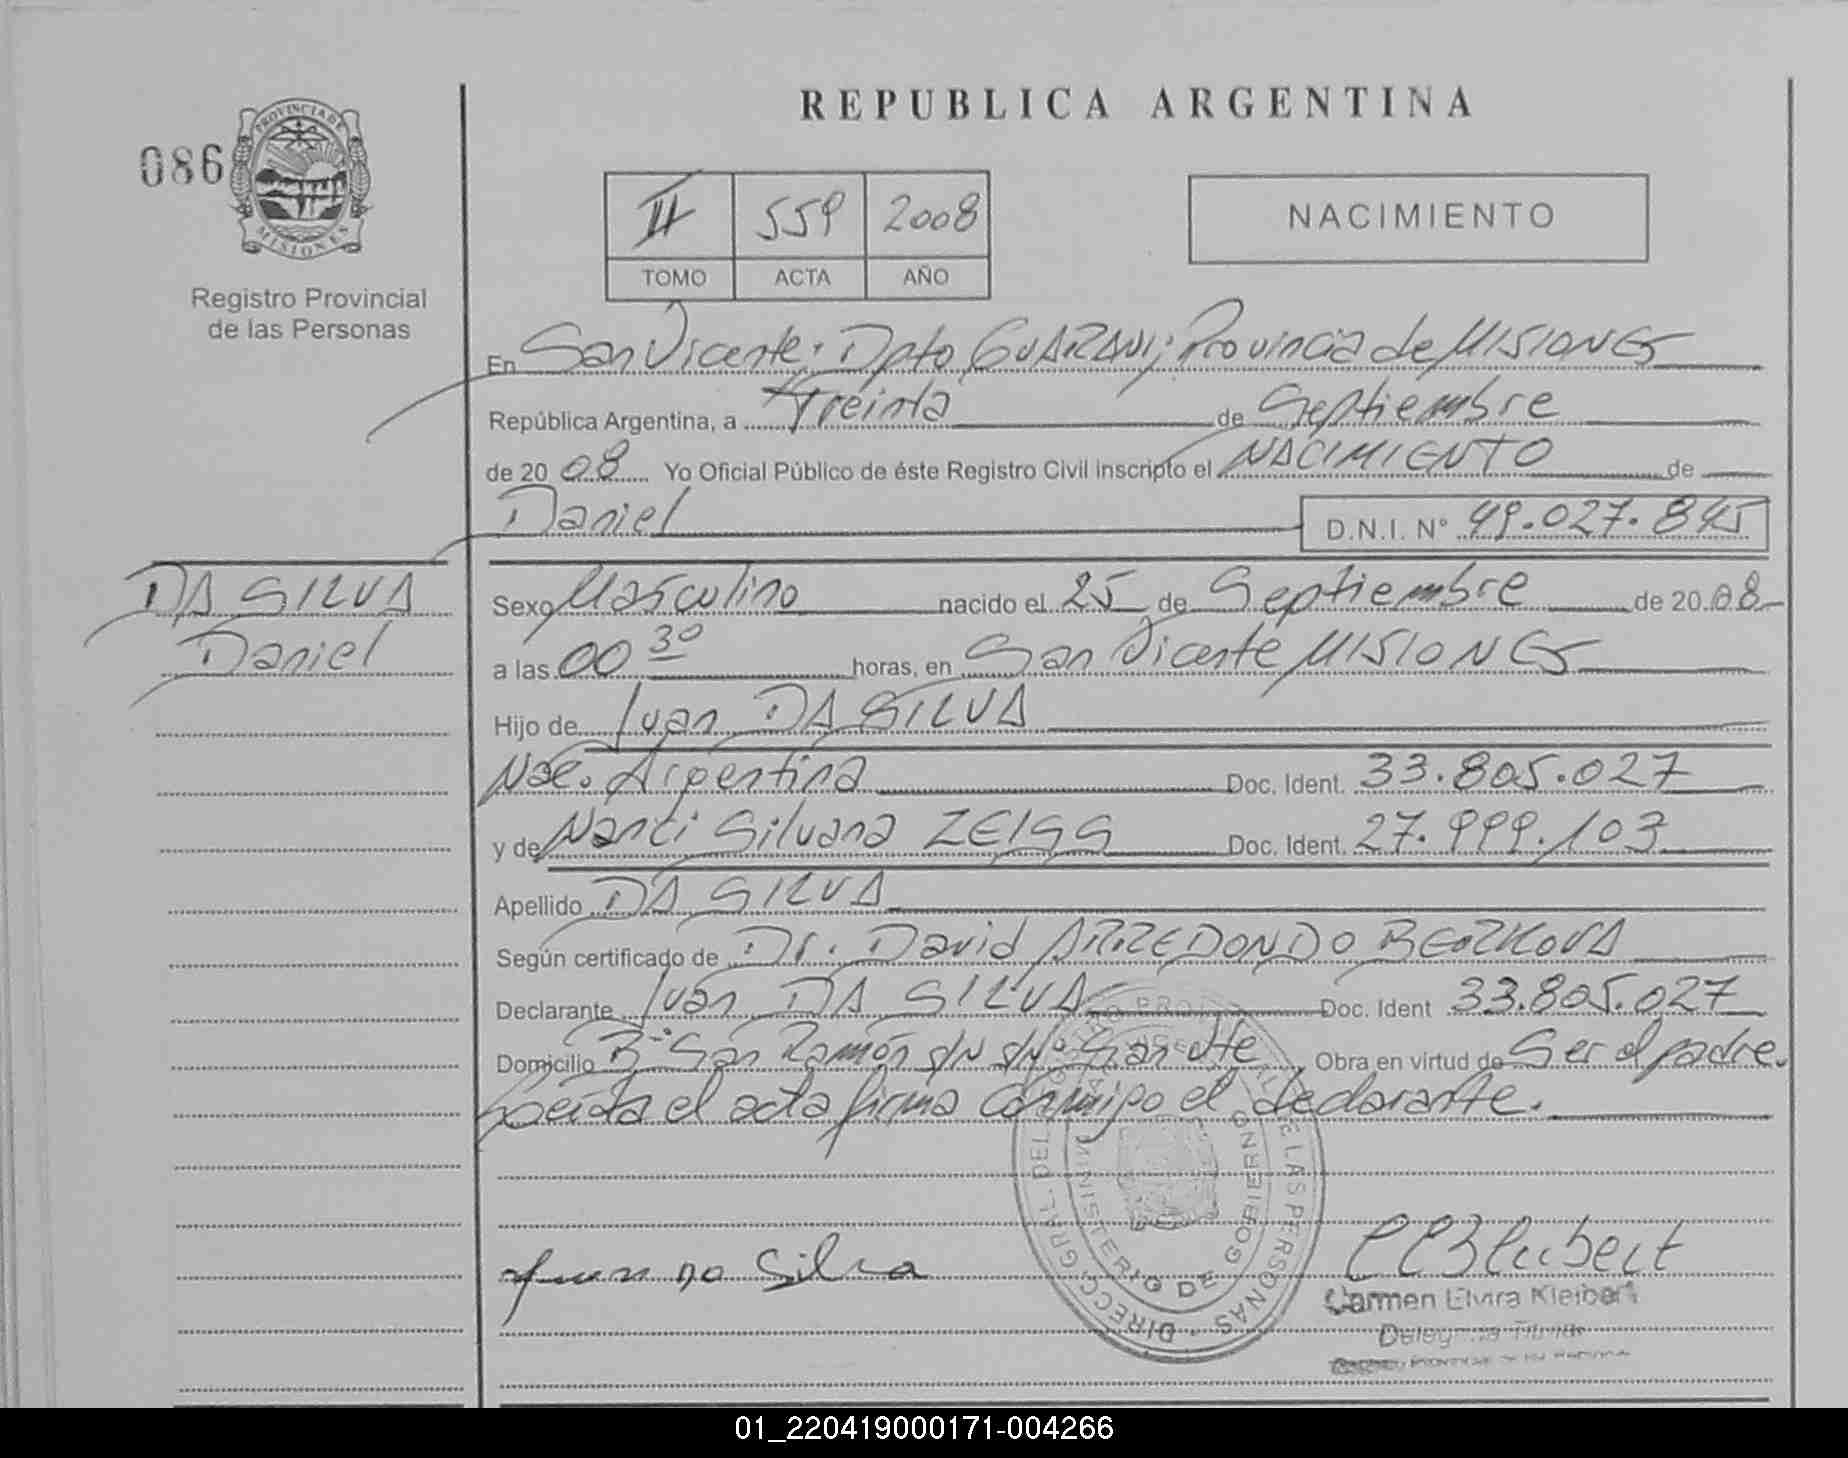 REPUBLICA ARGENTINA
086
PROVINCIA DE
MISIONES
Registro Provincial
de las Personas
II 559 2008
TOMO ACTA AÑO
NACIMIENTO
En San Vicente, Dpto GUARANI; Provincia de MISIONES
República Argentina, a Treinta de Septiembre
de 20 08 Yo Oficial Público de éste Registro Civil inscripto el NACIMIENTO de
Daniel D.N.I. Nº 49.027.845
DA SILVA
Daniel
Sexo Masculino nacido el 25 de Septiembre de 20 08
a las 00 30 horas, en San Vicente MISIONES
Hijo de Juan DA SILVA
Nac. Argentina Doc. Ident. 33.805.027
y de Nanci Silvana ZEISS Doc. Ident. 27.999.103
Apellido DA SILVA
Según certificado de Dr. David ARREDONDO BEIZKOVA
Declarante Juan DA SILVA Doc. Ident 33.805.027
Domicilio Bº San Ramón s/Nº San Vte Obra en virtud de Ser el padre.
Leída el acta firma conmigo el declarante.
DIRECC. GRAL. DEL REGISTRO PROVINCIAL DE LAS PERSONAS
MINISTERIO DE GOBIERNO
Juan Da Silva
CEKleibert
Carmen Elvira Kleibert
Delegada Titular
01_220419000171-004266